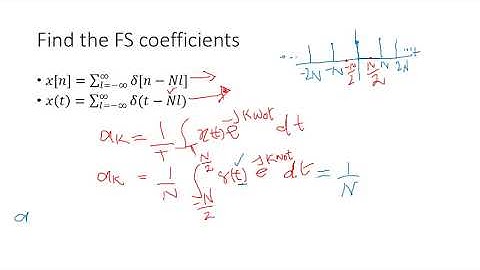 Find the FS coefficients
• x[n] = ∑_{l=-∞}^{∞} δ[n − Nl]
• x(t) = ∑_{l=-∞}^{∞} δ(t − Nl)
... -2N -N -N/2 N/2 N 2N ...
a_K = 1/T ∫_T x(t) e^{-jKω₀t} dt
a_K = 1/N ∫_{-N/2}^{N/2} δ(t) e^{-jKω₀t} dt = 1/N
a